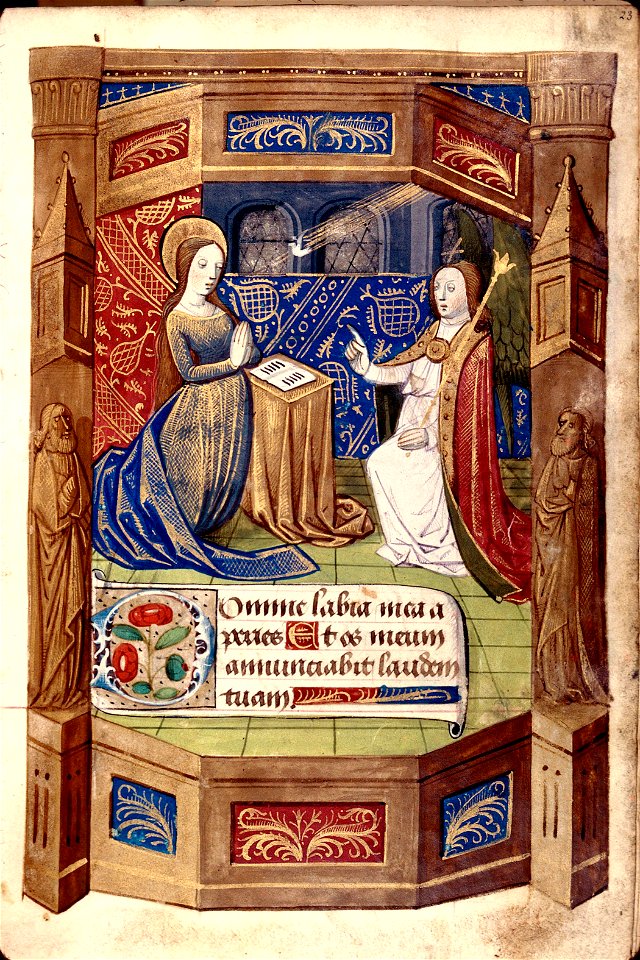 23
Domine labia mea a
peries Et os meum
annunciabit laudem
tuam.